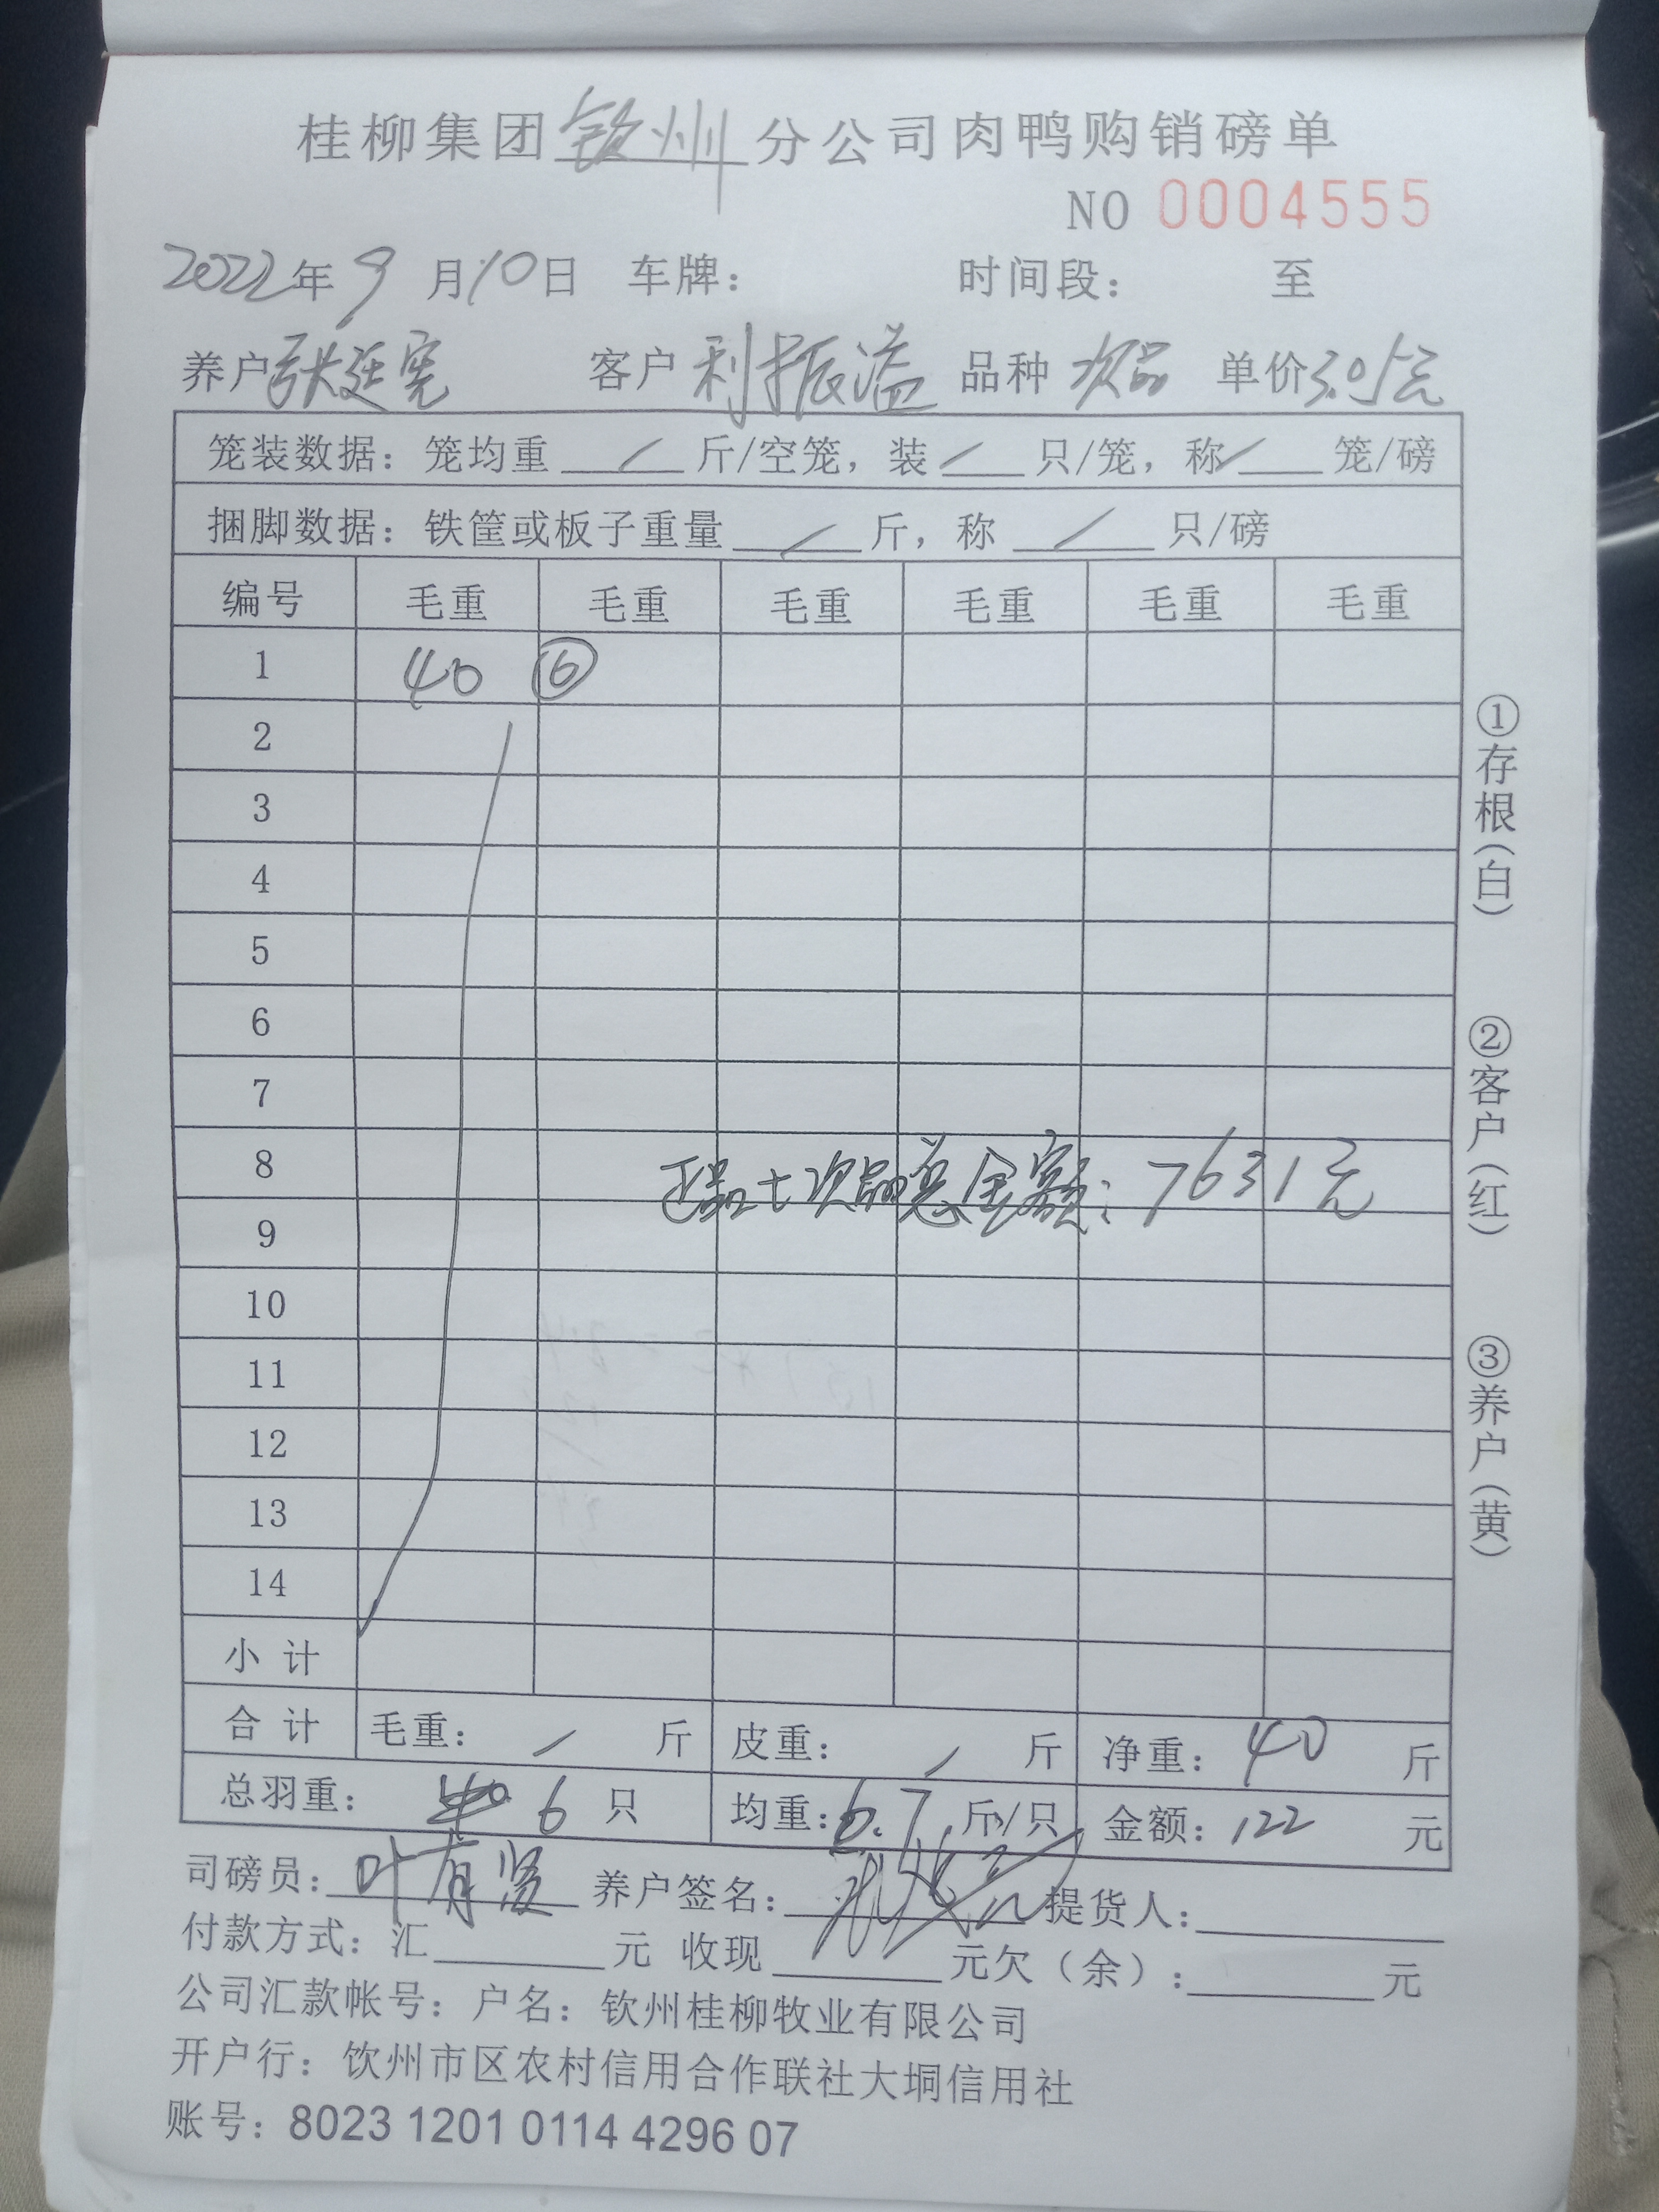 桂柳集团钦州分公司肉鸭购销磅单
NO 0004555
2022年9月10日 车牌： 时间段： 至
养户张廷宪 客户利振溢 品种次品 单价3.05元
笼装数据：笼均重/斤/空笼，装/只/笼，称/笼/磅
捆脚数据：铁筐或板子重量/斤，称/只/磅
编号 毛重 毛重 毛重 毛重 毛重 毛重
1 40 ⑥
2
3
4
5
6
7
8
正品+次品总金额：7631元
9
10
11
12
13
14
小计
合计 毛重：/斤 皮重：/斤 净重：40斤
总羽重：6只 均重：6.7斤/只 金额：122元
司磅员：叶有贤 养户签名： 提货人：
付款方式：汇 元 收现 元欠（余）： 元
公司汇款帐号：户名：钦州桂柳牧业有限公司
开户行：钦州市区农村信用合作联社大垌信用社
账号：8023 1201 0114 4296 07
①存根（白）
②客户（红）
③养户（黄）